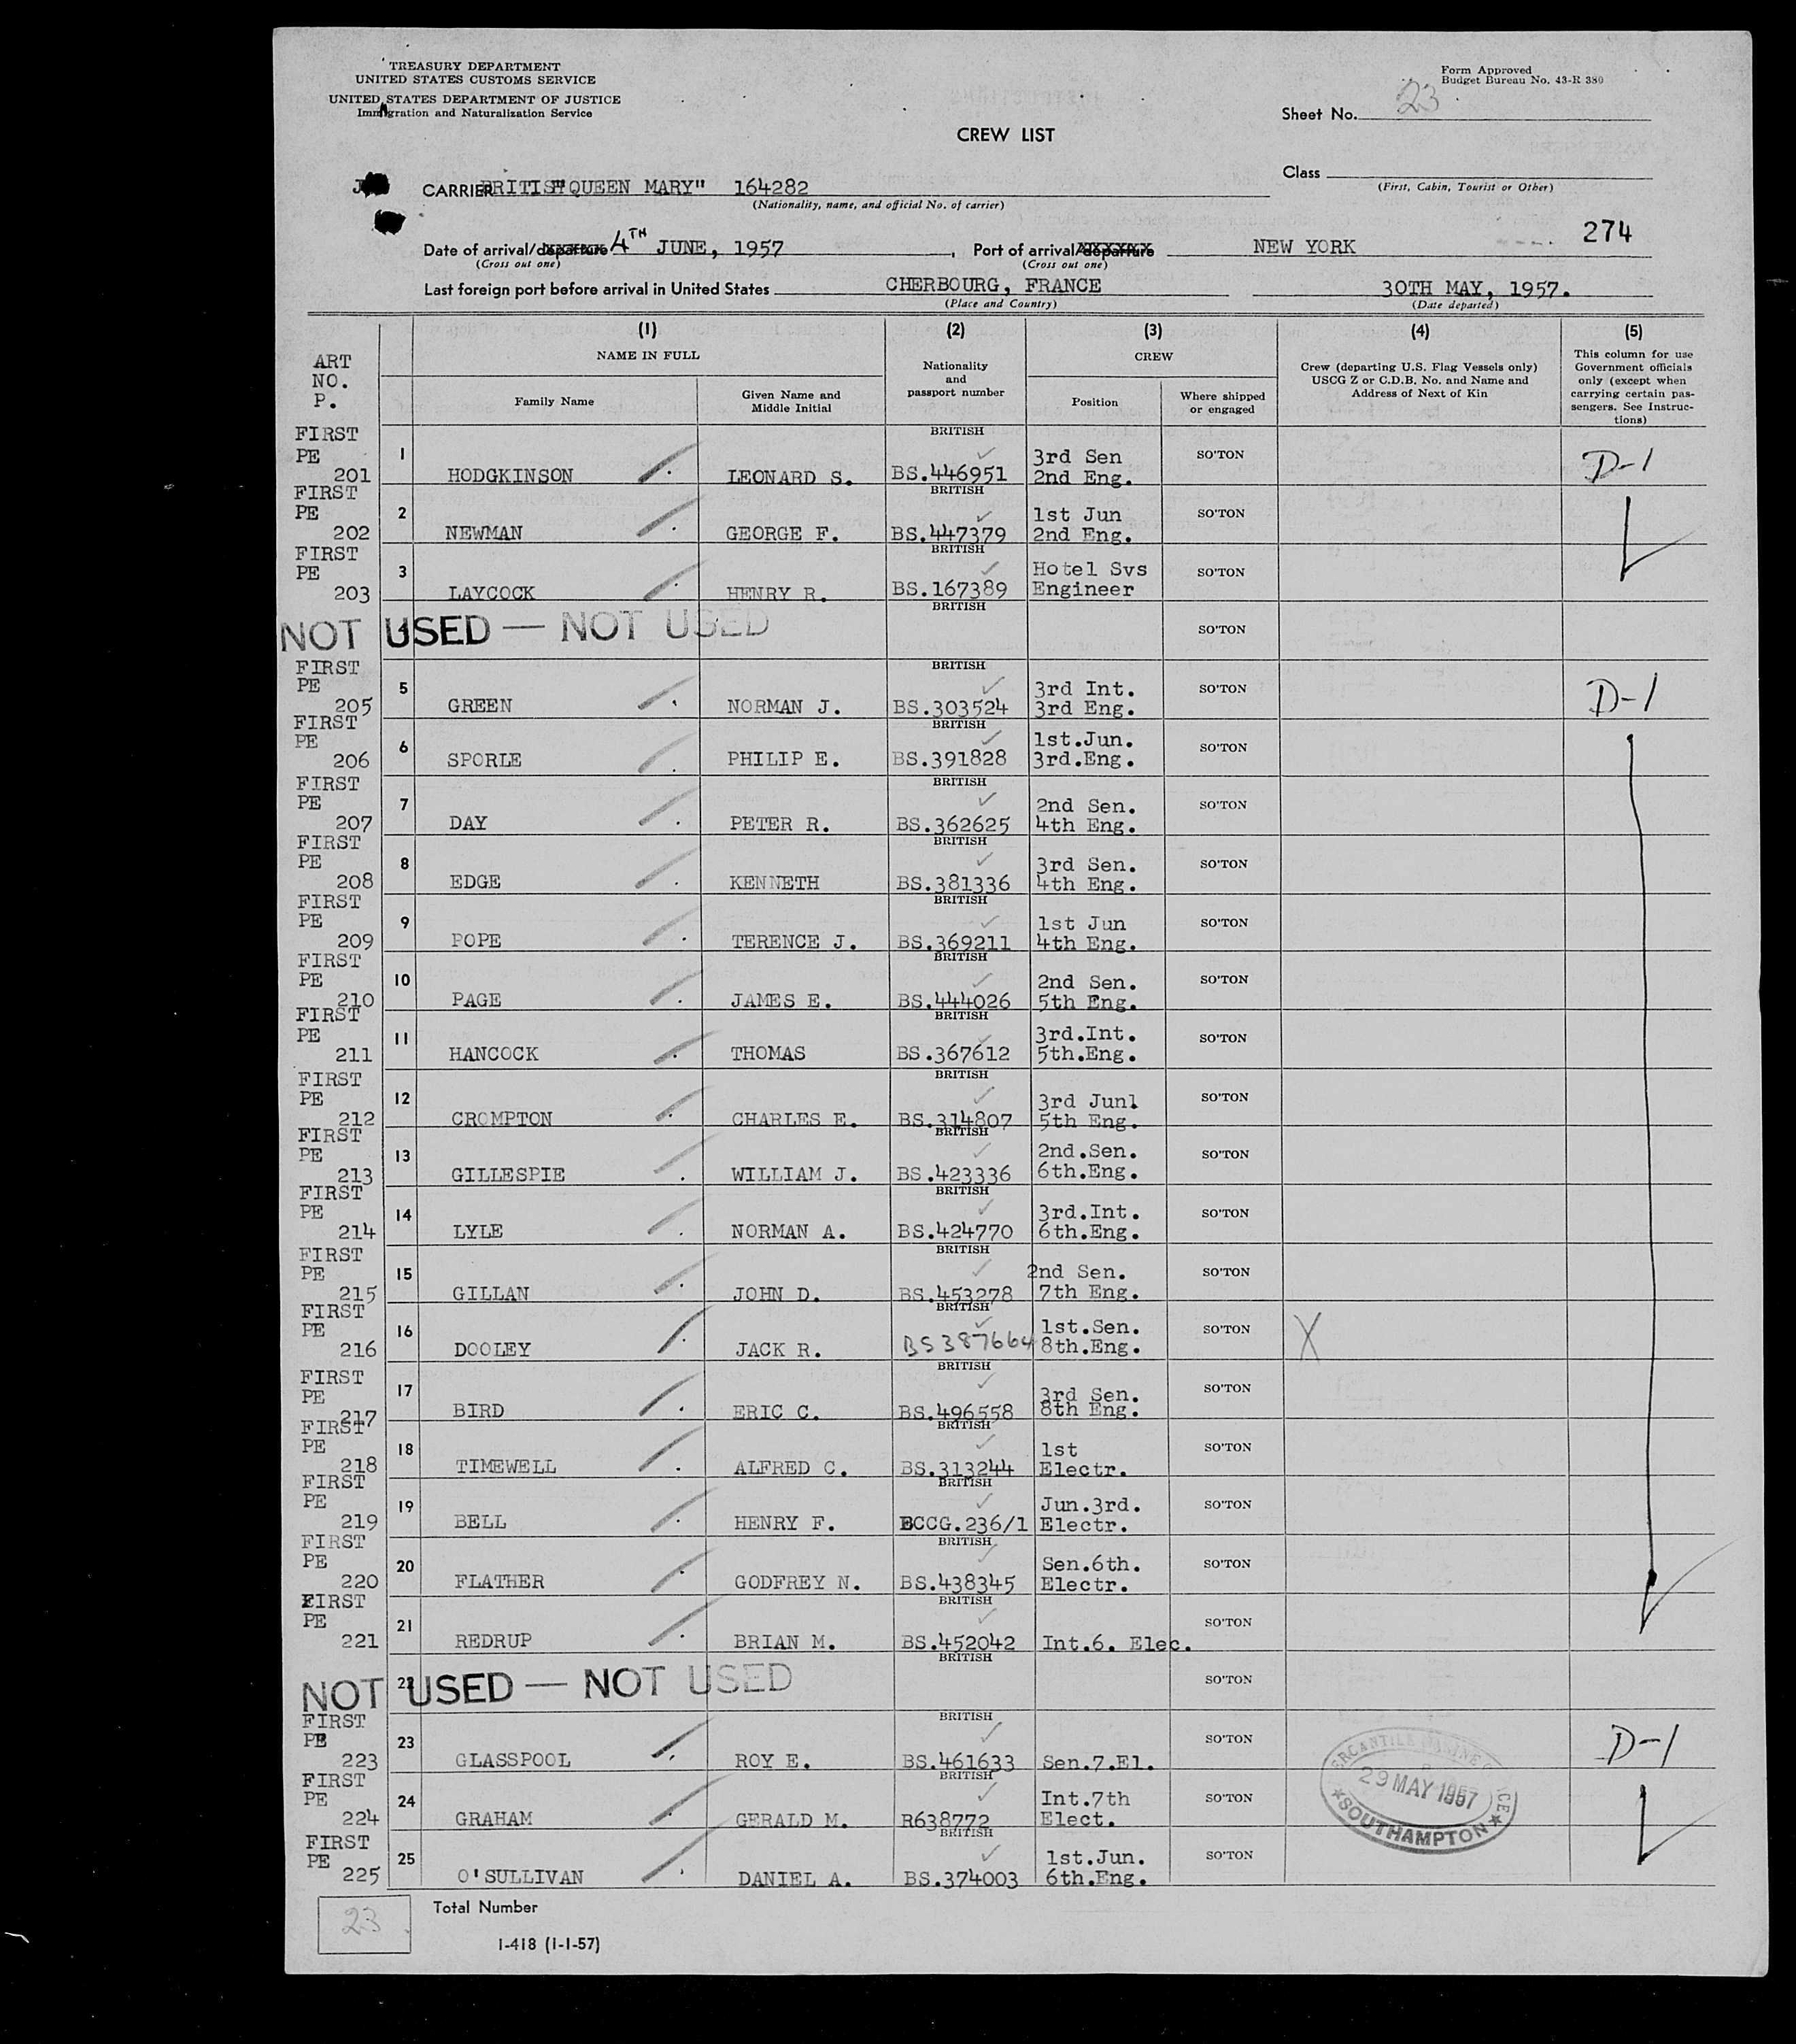 TREASURY DEPARTMENT
UNITED STATES CUSTOMS SERVICE
UNITED STATES DEPARTMENT OF JUSTICE
Immigration and Naturalization Service
Form Approved
Budget Bureau No. 43-R 380
Sheet No. 23
CREW LIST
Class
(First, Cabin, Tourist or Other)
CARRIER BRITISH "QUEEN MARY" 164282
(Nationality, name, and official No. of carrier)
274
Date of arrival/departure 4TH JUNE, 1957, Port of arrival/departure NEW YORK
(Cross out one) (Cross out one)
Last foreign port before arrival in United States CHERBOURG, FRANCE 30TH MAY, 1957.
(Place and Country) (Date departed)
ART NO. P.
(1) (2) (3) (4) (5)
NAME IN FULL
Family Name
Given Name and Middle Initial
Nationality and passport number
CREW
Position
Where shipped or engaged
Crew (departing U.S. Flag Vessels only) USCG Z or C.D.B. No. and Name and Address of Next of Kin
This column for use Government officials only (except when carrying certain passengers. See Instructions)
FIRST PE 201 1 HODGKINSON LEONARD S. BRITISH BS.446951 3rd Sen 2nd Eng. SO'TON D-1
FIRST PE 202 2 NEWMAN GEORGE F. BRITISH BS.447379 1st Jun 2nd Eng. SO'TON
FIRST PE 203 3 LAYCOCK HENRY R. BRITISH BS.167389 Hotel Svs Engineer SO'TON
NOT USED — NOT USED 4 BRITISH SO'TON
FIRST PE 205 5 GREEN NORMAN J. BRITISH BS.303524 3rd Int. 3rd Eng. SO'TON D-1
FIRST PE 206 6 SPORLE PHILIP E. BRITISH BS.391828 1st.Jun. 3rd.Eng. SO'TON
FIRST PE 207 7 DAY PETER R. BRITISH BS.362625 2nd Sen. 4th Eng. SO'TON
FIRST PE 208 8 EDGE KENNETH BRITISH BS.381336 3rd Sen. 4th Eng. SO'TON
FIRST PE 209 9 POPE TERENCE J. BRITISH BS.369211 1st Jun 4th Eng. SO'TON
FIRST PE 210 10 PAGE JAMES E. BRITISH BS.444026 2nd Sen. 5th Eng. SO'TON
FIRST PE 211 11 HANCOCK THOMAS BRITISH BS.367612 3rd.Int. 5th.Eng. SO'TON
FIRST PE 212 12 CROMPTON CHARLES E. BRITISH BS.314807 3rd Junl 5th Eng. SO'TON
FIRST PE 213 13 GILLESPIE WILLIAM J. BRITISH BS.423336 2nd.Sen. 6th.Eng. SO'TON
FIRST PE 214 14 LYLE NORMAN A. BRITISH BS.424770 3rd.Int. 6th.Eng. SO'TON
FIRST PE 215 15 GILLAN JOHN D. BRITISH BS.453278 2nd Sen. 7th Eng. SO'TON
FIRST PE 216 16 DOOLEY JACK R. BRITISH BS387664 1st.Sen. 8th.Eng. SO'TON X
FIRST PE 217 17 BIRD ERIC C. BRITISH BS.496558 3rd Sen. 8th Eng. SO'TON
FIRST PE 218 18 TIMEWELL ALFRED C. BRITISH BS.313244 1st Electr. SO'TON
FIRST PE 219 19 BELL HENRY F. BRITISH BCCG.236/1 Jun.3rd. Electr. SO'TON
FIRST PE 220 20 FLATHER GODFREY N. BRITISH BS.438345 Sen.6th. Electr. SO'TON
FIRST PE 221 21 REDRUP BRIAN M. BRITISH BS.452042 Int.6. Elec. SO'TON
NOT USED — NOT USED 22 BRITISH SO'TON
FIRST PE 223 23 GLASSPOOL ROY E. BRITISH BS.461633 Sen.7.El. SO'TON D-1
FIRST PE 224 24 GRAHAM GERALD M. BRITISH R638772 Int.7th Elect. SO'TON
FIRST PE 225 25 O'SULLIVAN DANIEL A. BRITISH BS.374003 1st.Jun. 6th.Eng. SO'TON
29 MAY 1957
SOUTHAMPTON
23 Total Number
I-418 (1-1-57)